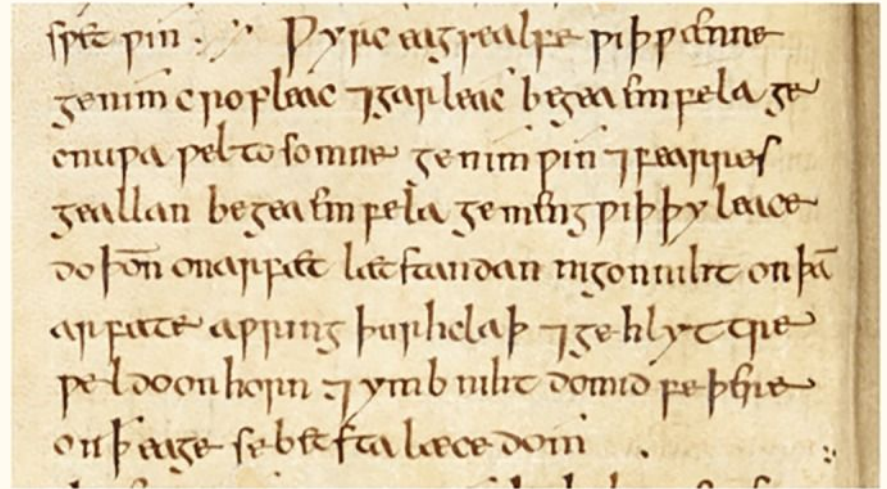 sƿet ƿin . ⁖ Ƿyrc eagsealfe ƿiþ ƿænne
genim cropleac ⁊ garleac begea emfela ge
cnuƿa ƿel to somne genim ƿin ⁊ fearres
geallan begea emfela gemeng ƿiþ þy leace
do þoń on arfæt læt standan nigon niht on þā
arfæte aƿring þurh claþ ⁊ ge hlyttre
ƿel do on horn ⁊ ymb niht do mid feþere
on ꝥ eage se betsta læce dom . :,